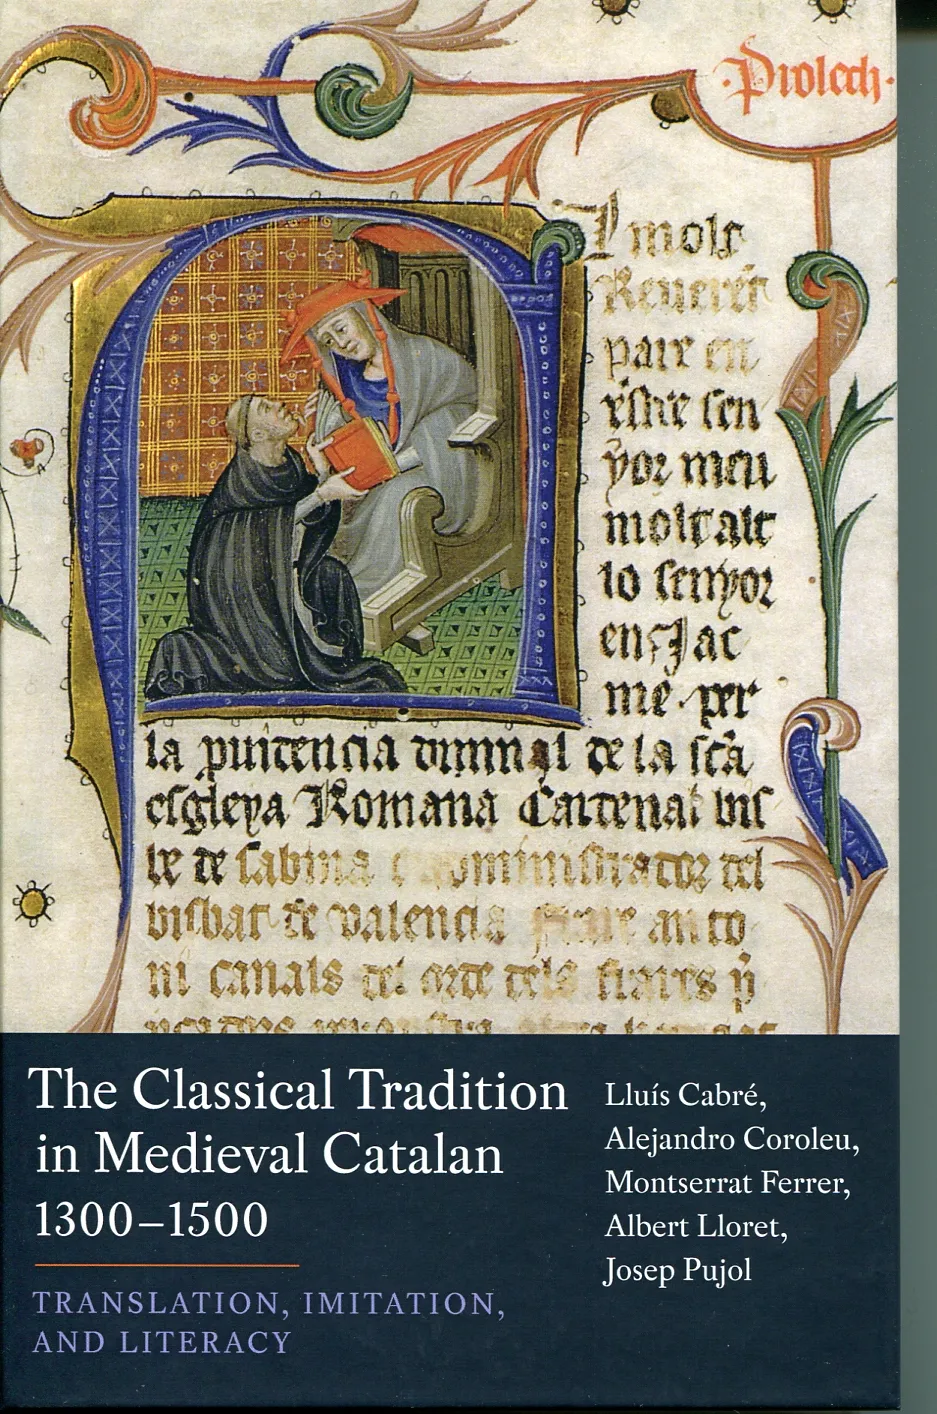 ·Prolech·
Al molt
Reuerēt
pare en
xṕhte sen
yor meu
molt alt
lo senyor
en Jac
me· per
la prouidencia diuinal de la scā
esgleya Romana Cardenal bis
be de sabina e administrador del
bisbat de valencia frare anto
ni canals del orde dels frares p̄
The Classical Tradition
in Medieval Catalan
1300–1500
TRANSLATION, IMITATION,
AND LITERACY
Lluís Cabré,
Alejandro Coroleu,
Montserrat Ferrer,
Albert Lloret,
Josep Pujol